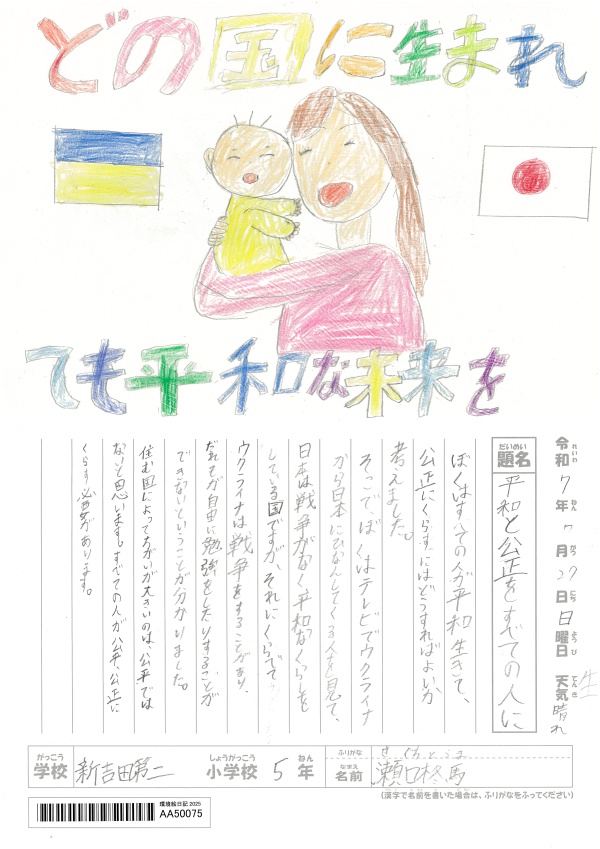 どの国に生まれ
ても平和な未来を
令和7年7月27日日曜日 天気晴れ
れいわ ねん がつ にち ようび てんき
だいめい
題名
平和と公正をすべての人に
ぼくはすべての人が平和生きて、
公正にくらすにはどうすればよいか
考えました。
そこでぼくはテレビでウクライナ
から日本にひなんしてくる人を見て、
日本は戦争がなく平和なくらしを
している国ですが、それにくらべて
ウクライナは戦争をすることがあり、
だれもが自由に勉強をしたりすることが
できないということが分かりました。
住む国によってちがいが大きいのは、公平では
ないと思います。すべての人が公平、公正に
くらす必要があります。
がっこう
学校
新吉田第二
しょうがっこう
小学校
5
ねん
年
ふりがな
なまえ
名前
せぐちとうま
瀬口柊馬
(漢字で名前を書いた場合は、ふりがなをふってください)
環境絵日記 2025
AA50075